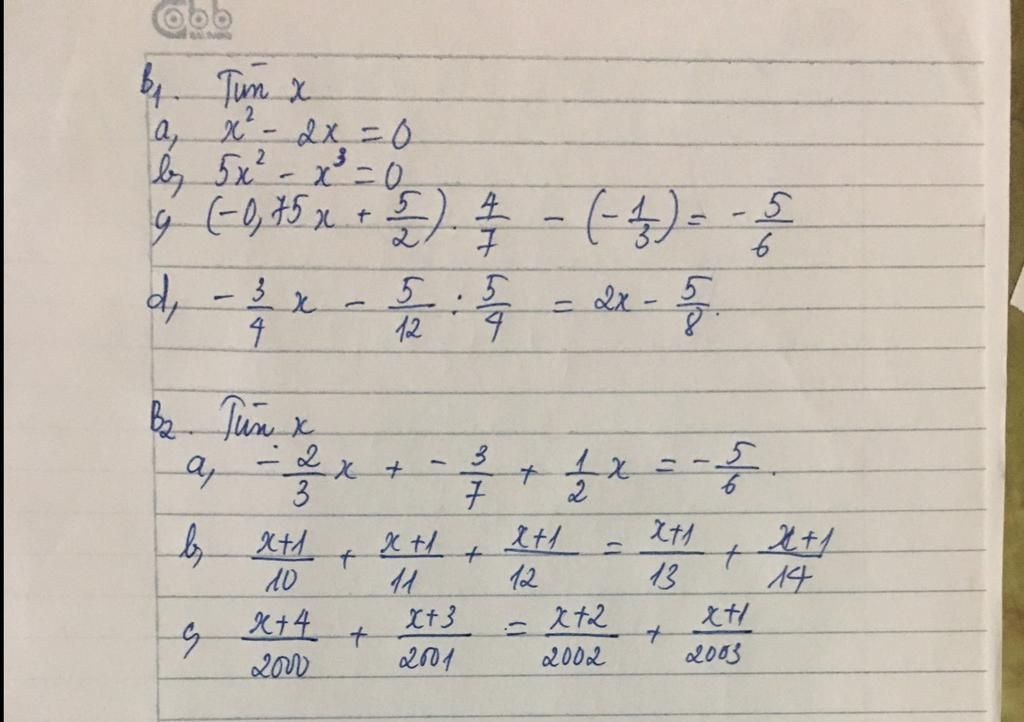 B1. Tìm x
a, x² - 2x = 0
b, 5x² - x³ = 0
c, (-0,75x + 5/2) . 4/7 - (-1/3) = - 5/6
d, - 3/4 x - 5/12 : 5/4 = 2x - 5/8.
B2. Tìm x
a, - 2/3 x + - 3/7 + 1/2 x = - 5/6.
b, x+1/10 + x+1/11 + x+1/12 = x+1/13 + x+1/14
c, x+4/2000 + x+3/2001 = x+2/2002 + x+1/2003